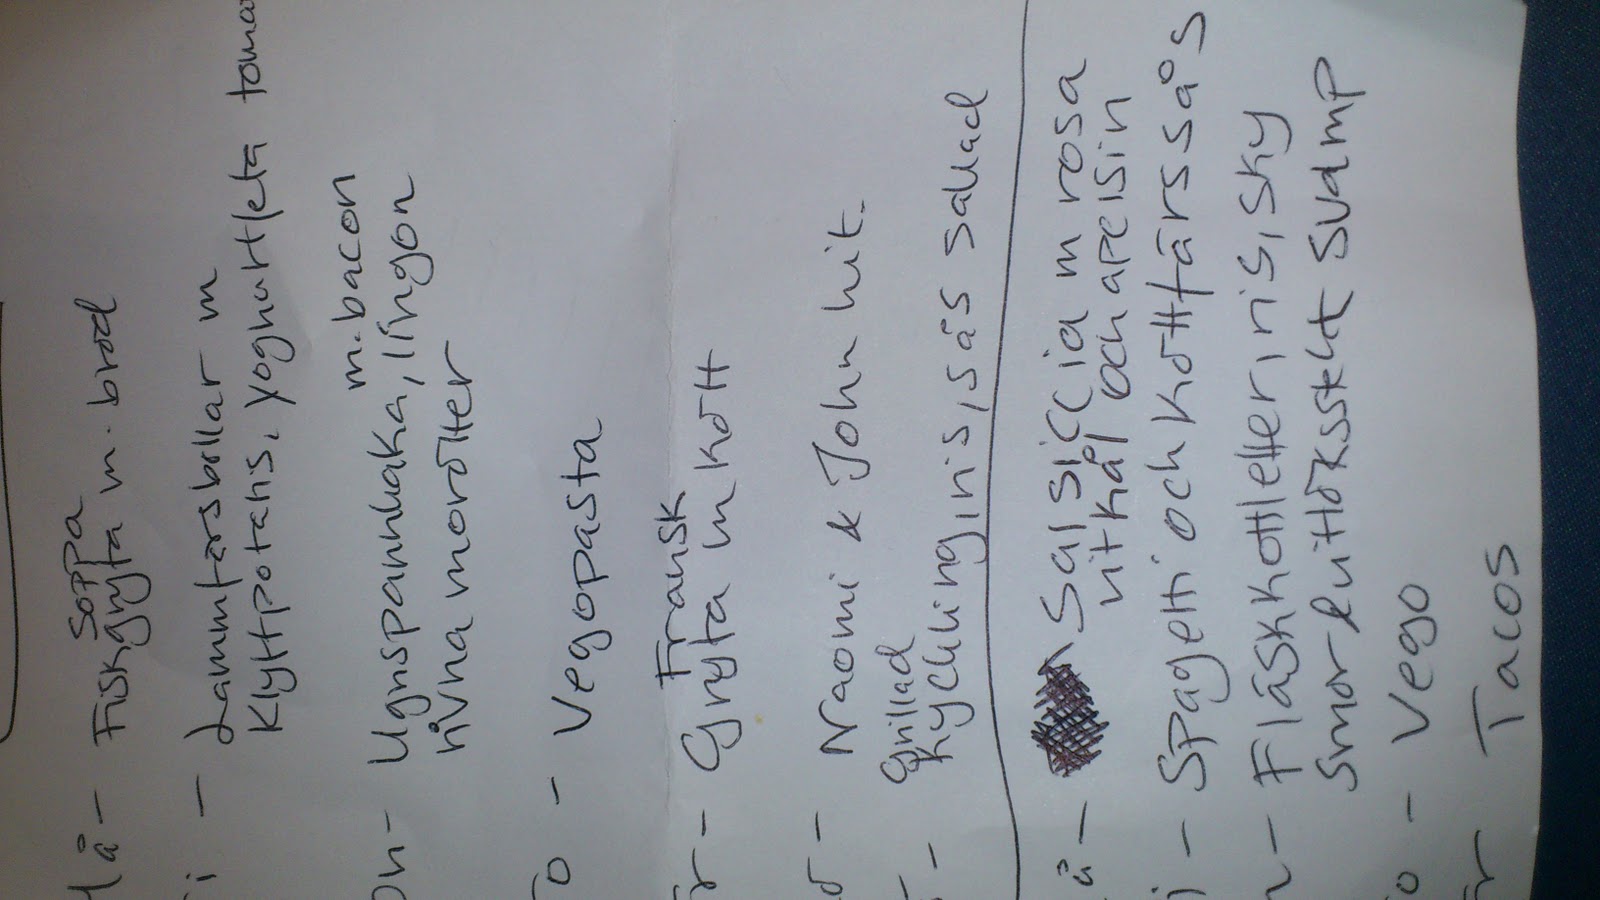 Må - Fiskgryta m. bröd
soppa
Ti - Lammfärsbiffar m
Klyftpotatis, yoghurt feta toma
On - Ugnspannkaka, lingon
m. bacon
rivna morötter
To - Vegopasta
Fr - Gryta m kött
Fransk
Naomi & John hit.
Grillad
kyckling, ris, sås sallad
Må - Salsiccia m rosa
vitkål och apelsin
Ti - Spagetti och köttfärssås
On - Fläskkotletter, ris, sky
Smör & vitlöksstekt svamp
To - Vego
Fr Tacos